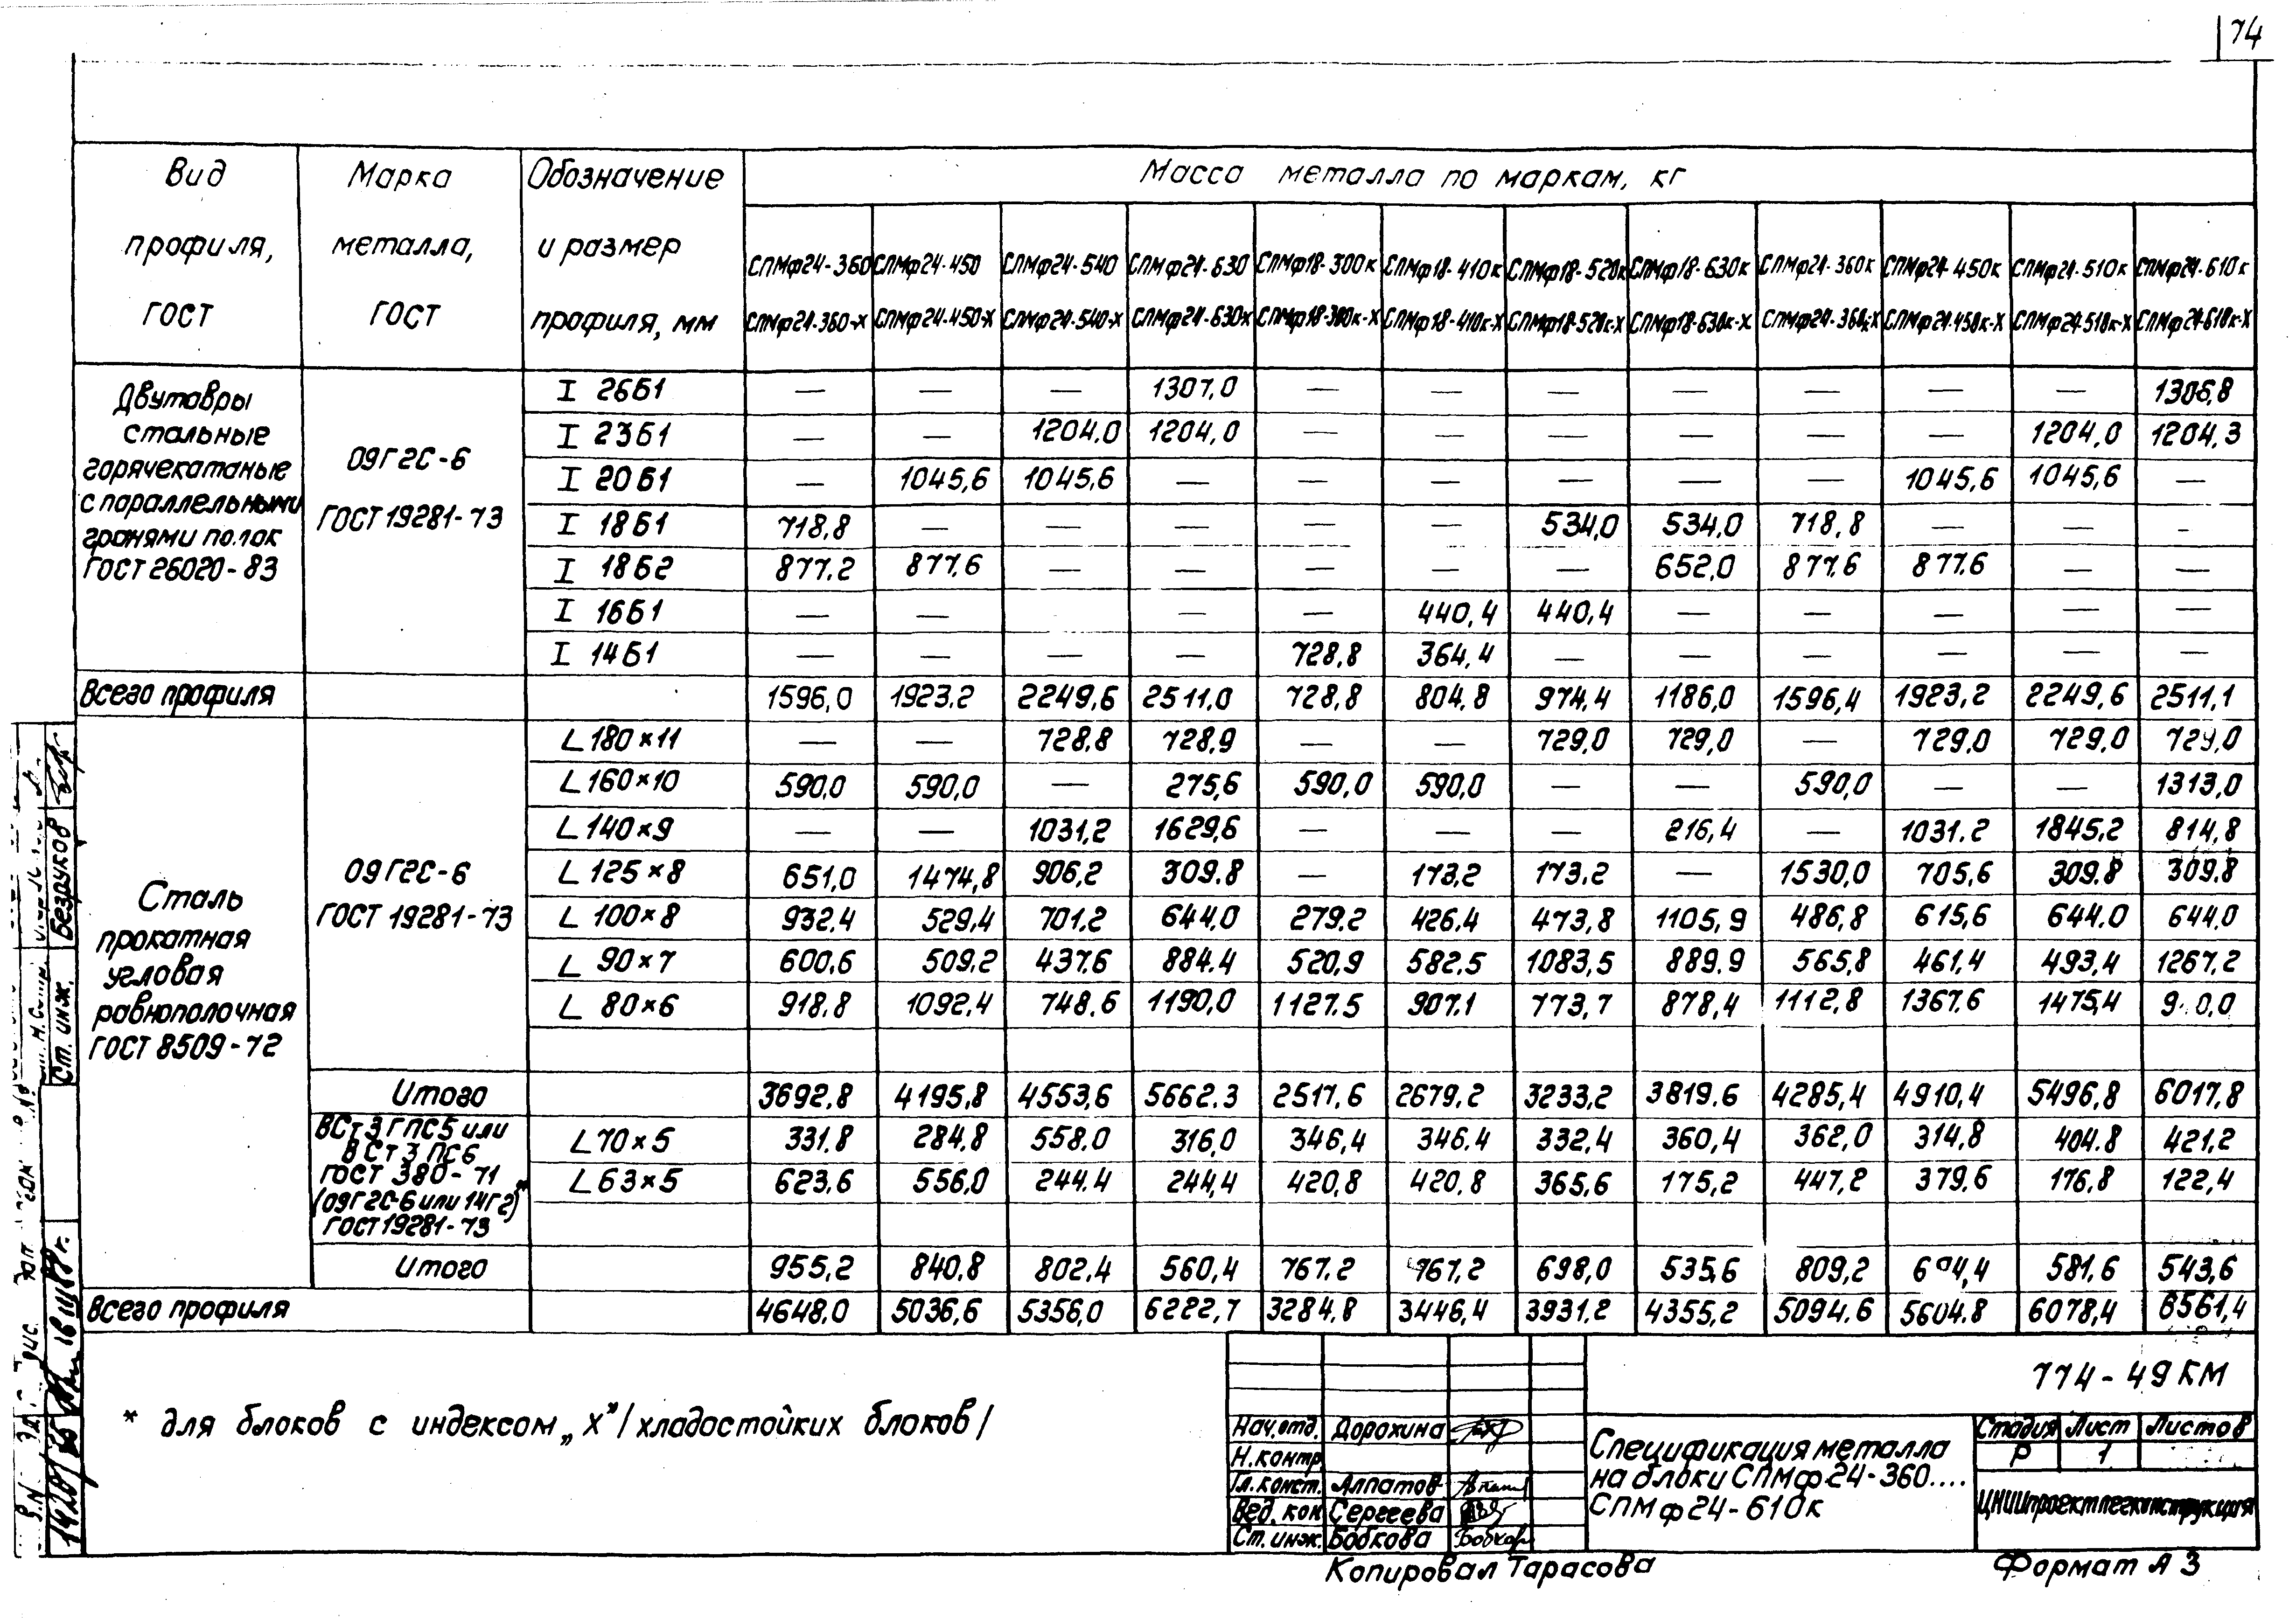 74
Вид профиля, ГОСТ
Марка металла, ГОСТ
Обозначение и размер профиля, мм
Масса металла по маркам, кг
СПМф24-360 СПМф24-450 СПМф24-540 СПМф24-630 СПМф18-300к СПМф18-410к СПМф18-520к СПМф18-630к СПМф24-360к СПМф24-450к СПМф24-510к СПМф24-610к
СПМф24-360-Х СПМф24-450-Х СПМф24-540-Х СПМф24-630Х СПМф18-300к-Х СПМф18-410к-Х СПМф18-520к-Х СПМф18-630к-Х СПМф24-360к-Х СПМф24-450к-Х СПМф24-510к-Х СПМф24-610к-Х
Двутавры
стальные
горячекатаные
с параллельными
гранями полок
ГОСТ 26020-83
09Г2С-6
ГОСТ 19281-73
I 26Б1 — — — 1307,0 — — — — — — — 1306,8
I 23Б1 — — 1204,0 1204,0 — — — — — — 1204,0 1204,3
I 20Б1 — 1045,6 1045,6 — — — — — — 1045,6 1045,6 —
I 18Б1 718,8 — — — — — 534,0 534,0 718,8 — — -
I 18Б2 877,2 877,6 — — — — — 652,0 877,6 877,6 — —
I 16Б1 — — — — — 440,4 440,4 — — — — —
I 14Б1 — — — — 728,8 364,4 — — — — — —
Всего профиля 1596,0 1923,2 2249,6 2511,0 728,8 804,8 974,4 1186,0 1596,4 1923,2 2249,6 2511,1
Сталь
прокатная
угловая
равнополочная
ГОСТ 8509-72
09Г2С-6
ГОСТ 19281-73
L 180×11 — — 728,8 728,9 — — 729,0 729,0 — 729,0 729,0 729,0
L 160×10 590,0 590,0 — 275,6 590,0 590,0 — — 590,0 — — 1313,0
L 140×9 — — 1031,2 1629,6 — — — 216,4 — 1031.2 1845,2 814,8
L 125×8 651,0 1474,8 906,2 309.8 — 173,2 173,2 — 1530,0 705,6 309.8 309.8
L 100×8 932.4 529,4 701.2 644,0 279,2 426.4 473,8 1105,9 486,8 615,6 644.0 644,0
L 90×7 600,6 509,2 437,6 884.4 520,9 582.5 1083,5 889.9 565,8 461,4 493,4 1267,2
L 80×6 918,8 1092,4 748,6 1190,0 1127.5 907,1 773,7 878,4 1112,8 1367,6 1475,4
Итого 3692,8 4195,8 4553,6 5662.3 2517,6 2679,2 3233,2 3819.6 4285,4 4910,4 5496,8 6017,8
ВСт3ГПС5 или
ВСт3ПС6
ГОСТ 380-71
(09Г2С-6 или 14Г2)*
ГОСТ 19281-73
L 70×5 331.8 284,8 558.0 316,0 346,4 346.4 332,4 360,4 362,0 314,8 404.8 421,2
L 63×5 623,6 556,0 244.4 244,4 420,8 420,8 365,6 175,2 447,2 379,6 176,8 122,4
Итого 955,2 840,8 802,4 560,4 767.2 767,2 698,0 535,6 809,2 581,6 543,6
Всего профиля 4648,0 5036,6 5356,0 6222,7 3284,8 3446,4 3931,2 4355,2 5094.6 5604.8 6078,4 6561,4
* для блоков с индексом „Х" /хладостойких блоков/
774-49 КМ
Нач.отд. Дорохина
Н.контр.
Гл.конст. Алпатов
Вед.кон. Сергеева
Ст.инж. Бобкова Бобкова
Спецификация металла
на блоки СПМф24-360....
СПМф24-610к
Стадия Лист Листов
Р 1
ЦНИИпроектлегконструкция
Копировал Тарасова
Формат А3
Ст. инж. Безруков